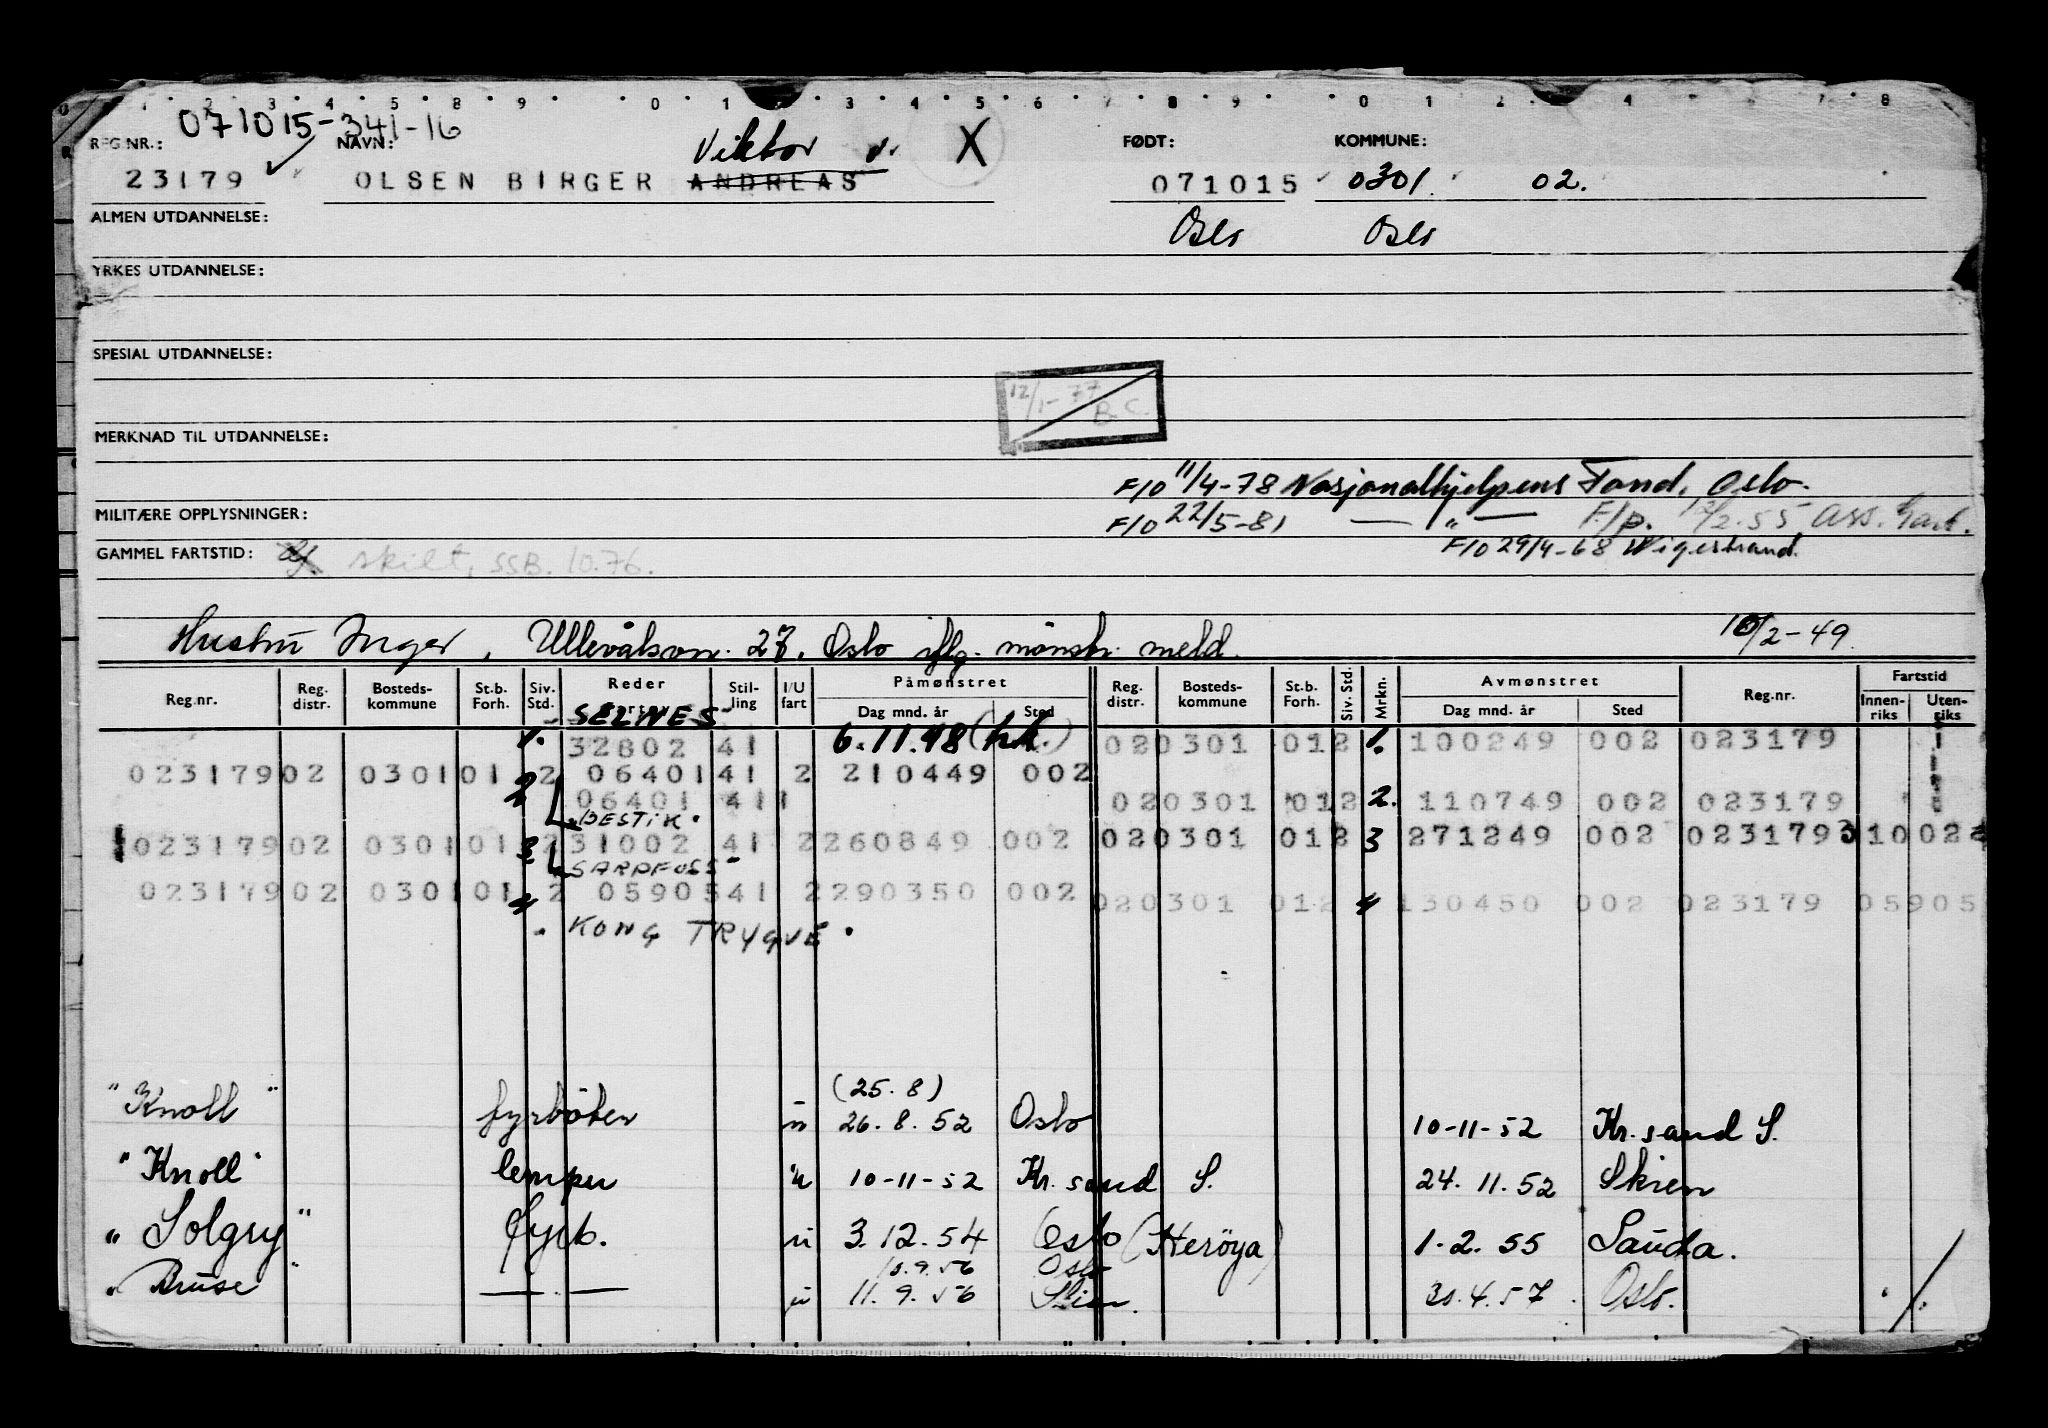 1 2 3 4 5 8 9 0 1 3 4 5 6 7 8 9 0 1 2 4 7 8
071015-341-16
REG.NR.: NAVN: Viktor X FØDT: KOMMUNE:
23179 OLSEN BIRGER ANDREAS 071015 0301 02.
ALMEN UTDANNELSE: Oslo Oslo
YRKES UTDANNELSE:
SPESIAL UTDANNELSE:
12/1-77 B.C.
MERKNAD TIL UTDANNELSE:
F/O 11/4-78 Nasjonalhjelpens Fond, Oslo.
MILITÆRE OPPLYSNINGER: F/O 22/5-81 — " — F/p. 12/2.55 Ass.
GAMMEL FARTSTID: skilt, SSB. 10.76. F/O 29/4-68 Wigestrand.
Hustru Inger, Ullevålsvn. 27, Oslo iflg. mønstr. meld. 10/2-49.
Reg.nr. Reg. distr. Bosteds-kommune St.b. Forh. Siv. Std. Reder Stil-ling I/U fart Påmønstret Dag mnd. år Sted Reg. distr. Bosteds-kommune St.b. Forh. Siv. Std. Mrkn. Avmønstret Dag mnd. år Sted Reg.nr. Fartstid Innen-riks Uten-riks
"SELNES"
1. 32802 41 6.11.48 020301 012 1. 100249 002 023179
023179 02 0301 01 2 06401 41 2 210449 002
2 06401 411 020301 012 2. 110749 002 023179
"BESTIK"
023179 02 0301 01 2 3 31002 41 2 260849 002 020301 012 3 271249 002 023179 3 10 02
"SARPFOSS"
023179 02 0301 01 4 2 05905 41 2 290350 002 020301 012 4 130450 002 023179 05905
"KONG TRYGVE"
(25.8)
"Knoll" fyrbøter u 26.8.52 Oslo 10-11-52 Kr.sand S.
"Knoll" lemper u 10-11-52 Kr.sand S. 24.11.52 Skien
"Solgry" fyrb. u 3.12.54 Oslo (Herøya) 1.2.55 Sauda.
10.9.56 Oslo
"Bruse" — " — u 11.9.56 Skien. 30.4.57 Oslo.